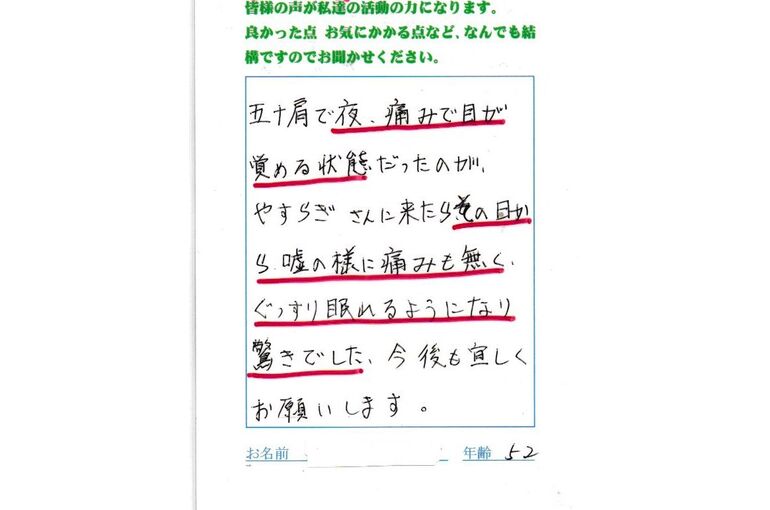 皆様の声が私達の活動の力になります。
良かった点 お気にかかる点など、なんでも結
構ですのでお聞かせください。
五十肩で夜、痛みで目が
覚める状態だったのが、
やすらぎ さんに来たら、その日か
ら、嘘の様に痛みも無く、
ぐっすり眠れるようになり
驚きでした、今後も宜しく
お願いします。
お名前
年齢 52